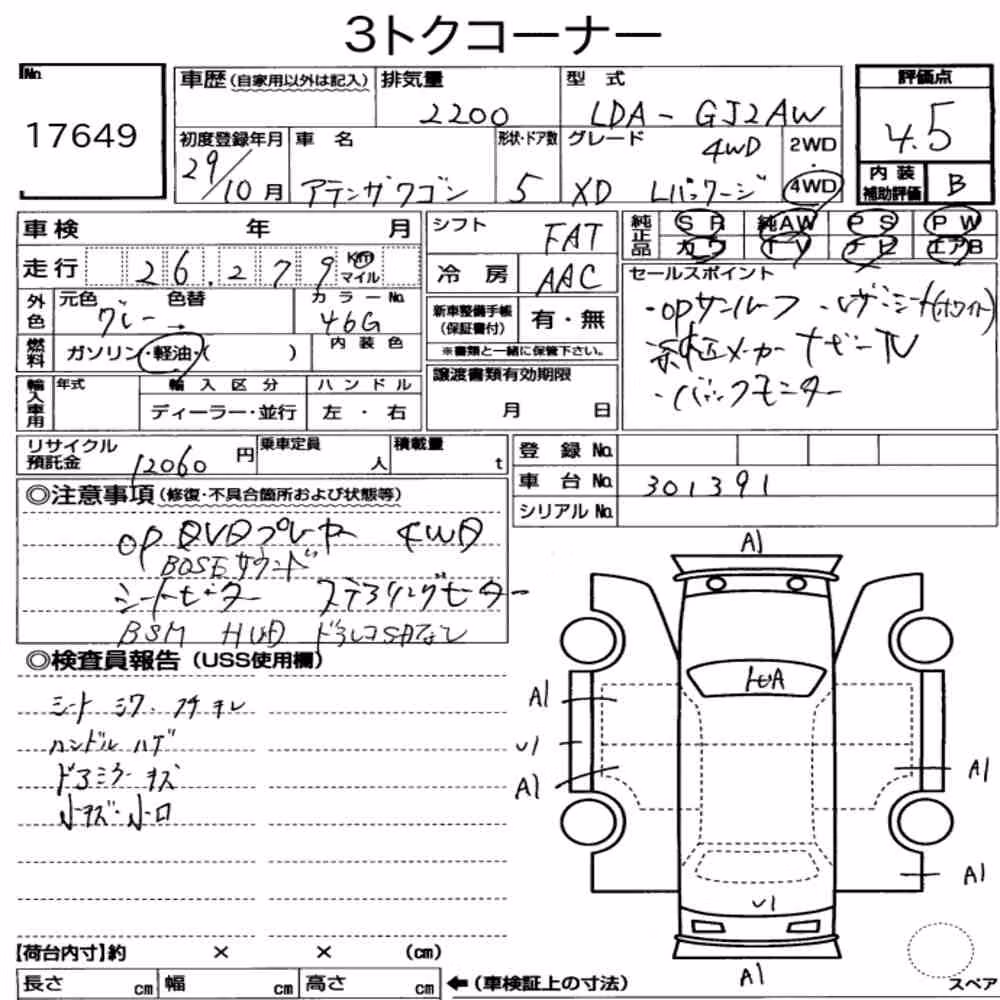 3トクコーナー
No.
17649
車歴（自家用以外は記入）
排気量
2200
型 式
LDA-GJ2AW
評価点
4.5
初度登録年月
29/10月
車 名
アテンザワゴン
形状・ドア数
5
グレード
4WD
XD Lパッケージ
2WD
・
4WD
内装
補助評価
B
車検 年 月
走行
26.279
Km
マイル
外色
元色 色替
グレー →
カラーNo.
46G
燃料
ガソリン・軽油・( )
内装色
輸入車用
年式
輸入区分
ディーラー・並行
ハンドル
左 ・ 右
シフト
FAT
冷房
AAC
新車整備手帳
（保証書付）
有・無
※書類と一緒に保管下さい。
譲渡書類有効期限
月 日
純正品
SR 純AW PS PW
カワ TV ナビ エアB
セールスポイント
・OPサンルーフ ・レザーシート(ホワイト)
純正メーカーナビTV
・バックモニター
リサイクル
預託金
12060円
乗車定員
人
積載量
t
登録No.
車台No.
301391
シリアルNo.
◎注意事項（修復・不具合箇所および状態等）
OP DVDプレヤー 4WD
BOSEサウンド
シートヒーター ステアリングヒーター
BSM HUD ドラレコSDなし
◎検査員報告（USS使用欄）
シート シワ・フチキレ
ハンドル ハゲ
ドアミラー キズ
小キズ・小凹
A1
A1
U1
A1
A1
A1
U1
A1
【荷台内寸】約 × × (cm)
長さ cm
幅 cm
高さ cm
←（車検証上の寸法）
スペア